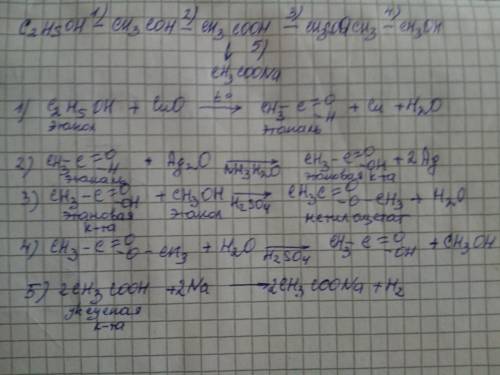 C2H5OH 1)— CH3COH 2)— CH3COOH 3)— CH3COOCH3 4)— CH3OH
↓ 5)
CH3COONa
1) C2H5OH + CuO —t°→ CH3-C=O -H + Cu + H2O
этанол этаналь
2) CH3-C=O -H + Ag2O —NH3H2O→ CH3-C=O -OH + 2Ag
этаналь этановая к-та
3) CH3-C=O -OH + CH3OH —H2SO4→ CH3C=O -O-CH3 + H2O
этановая к-та метилацетат
4) CH3-C=O -O-CH3 + H2O —H2SO4→ CH3-C=O -OH + CH3OH
5) 2CH3COOH + 2Na → 2CH3COONa + H2
уксусная
к-та